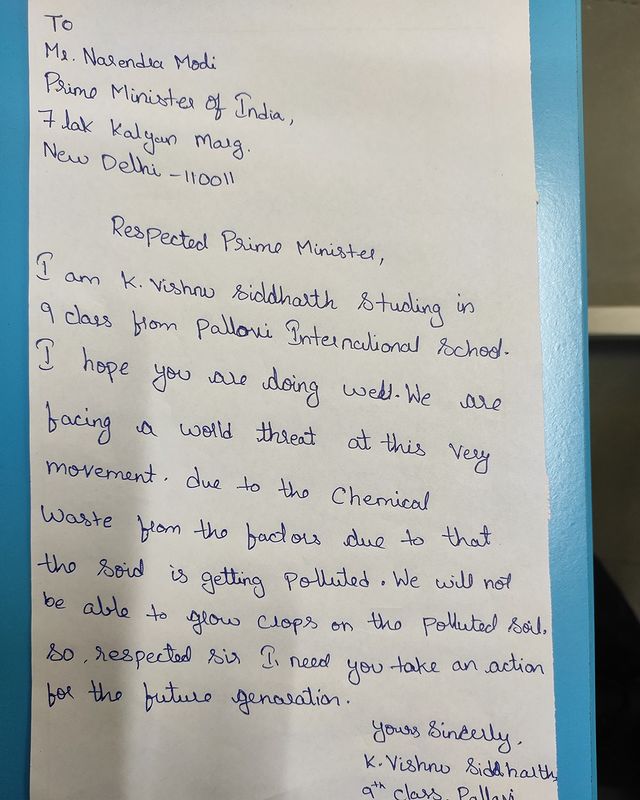 To
Mr. Narendra Modi
Prime Minister of India,
7 lak Kalyan Marg.
New Delhi - 110011
Respected Prime Minister,
I am K. Vishnu Siddharth Studing in
9 class from Pallavi International School.
I hope you are doing well. We are
facing a world threat at this very
movement. due to the Chemical
Waste from the factors due to that
the soid is getting Polluted. We will not
be able to grow crops on the Polluted Soil.
So, respected sir I need you take an action
for the future genaration.
Yours Sincerly,
K. Vishnu Siddharth
9th class, Pallavi